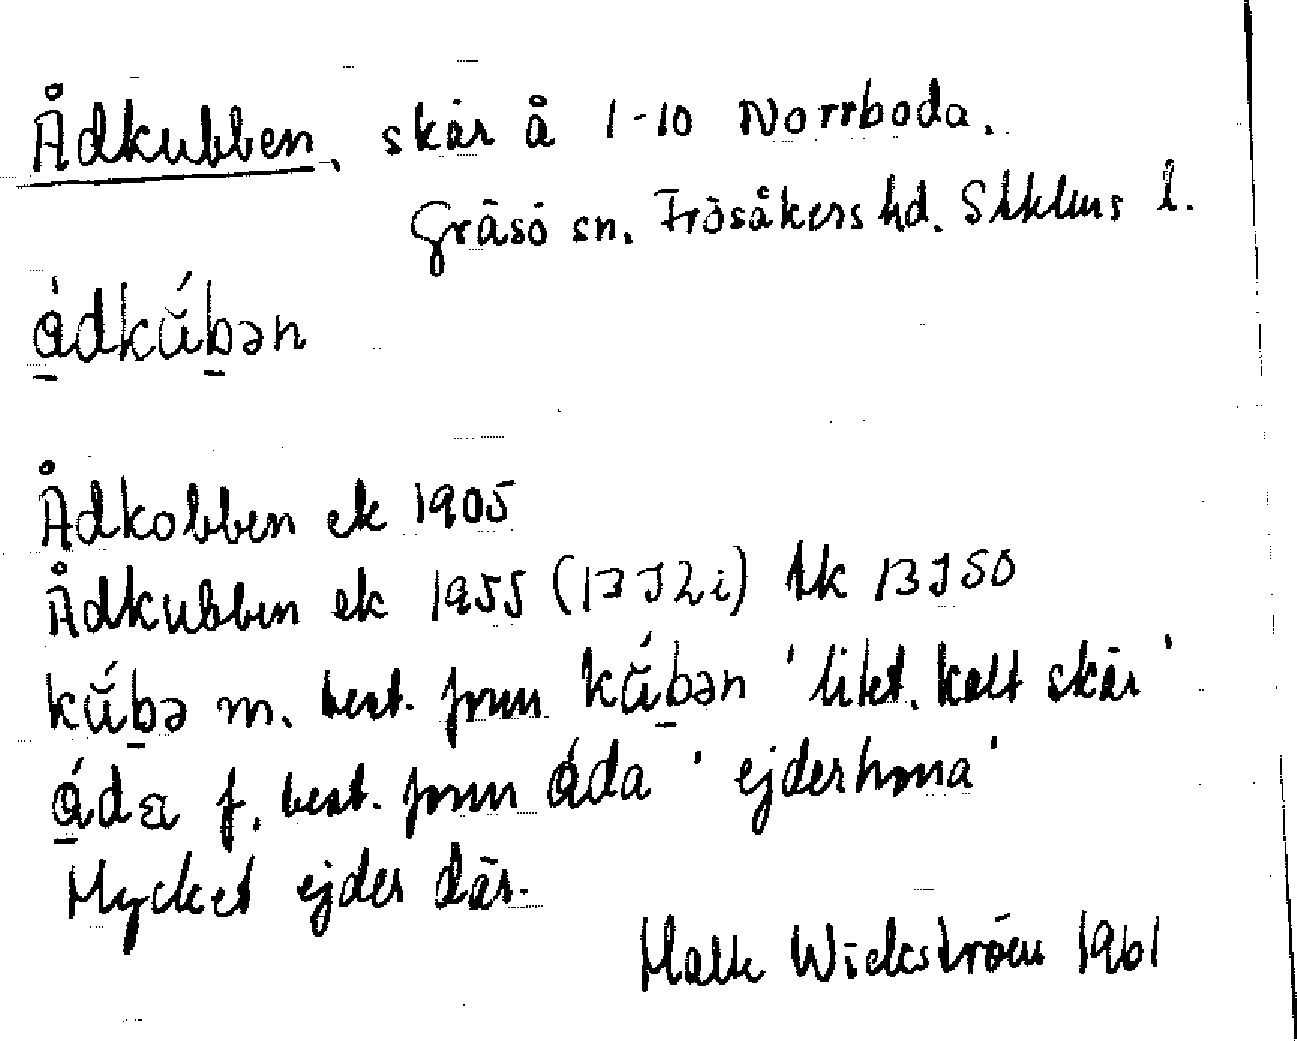 Ådkubben, skär å 1-10 Norrboda.
Gräsö sn. Frösåkers hd. Sthlms l.
ådkŭ́bən
Ådkobben ek 1905
Ådkubben ek 1955 (13J2i) tk 13J SO
kŭ́bə m. best. form kŭ́bən 'litet, kalt skär'
åda f. best. form åda 'ejderhona'
Mycket ejder där.
Wickström 1961